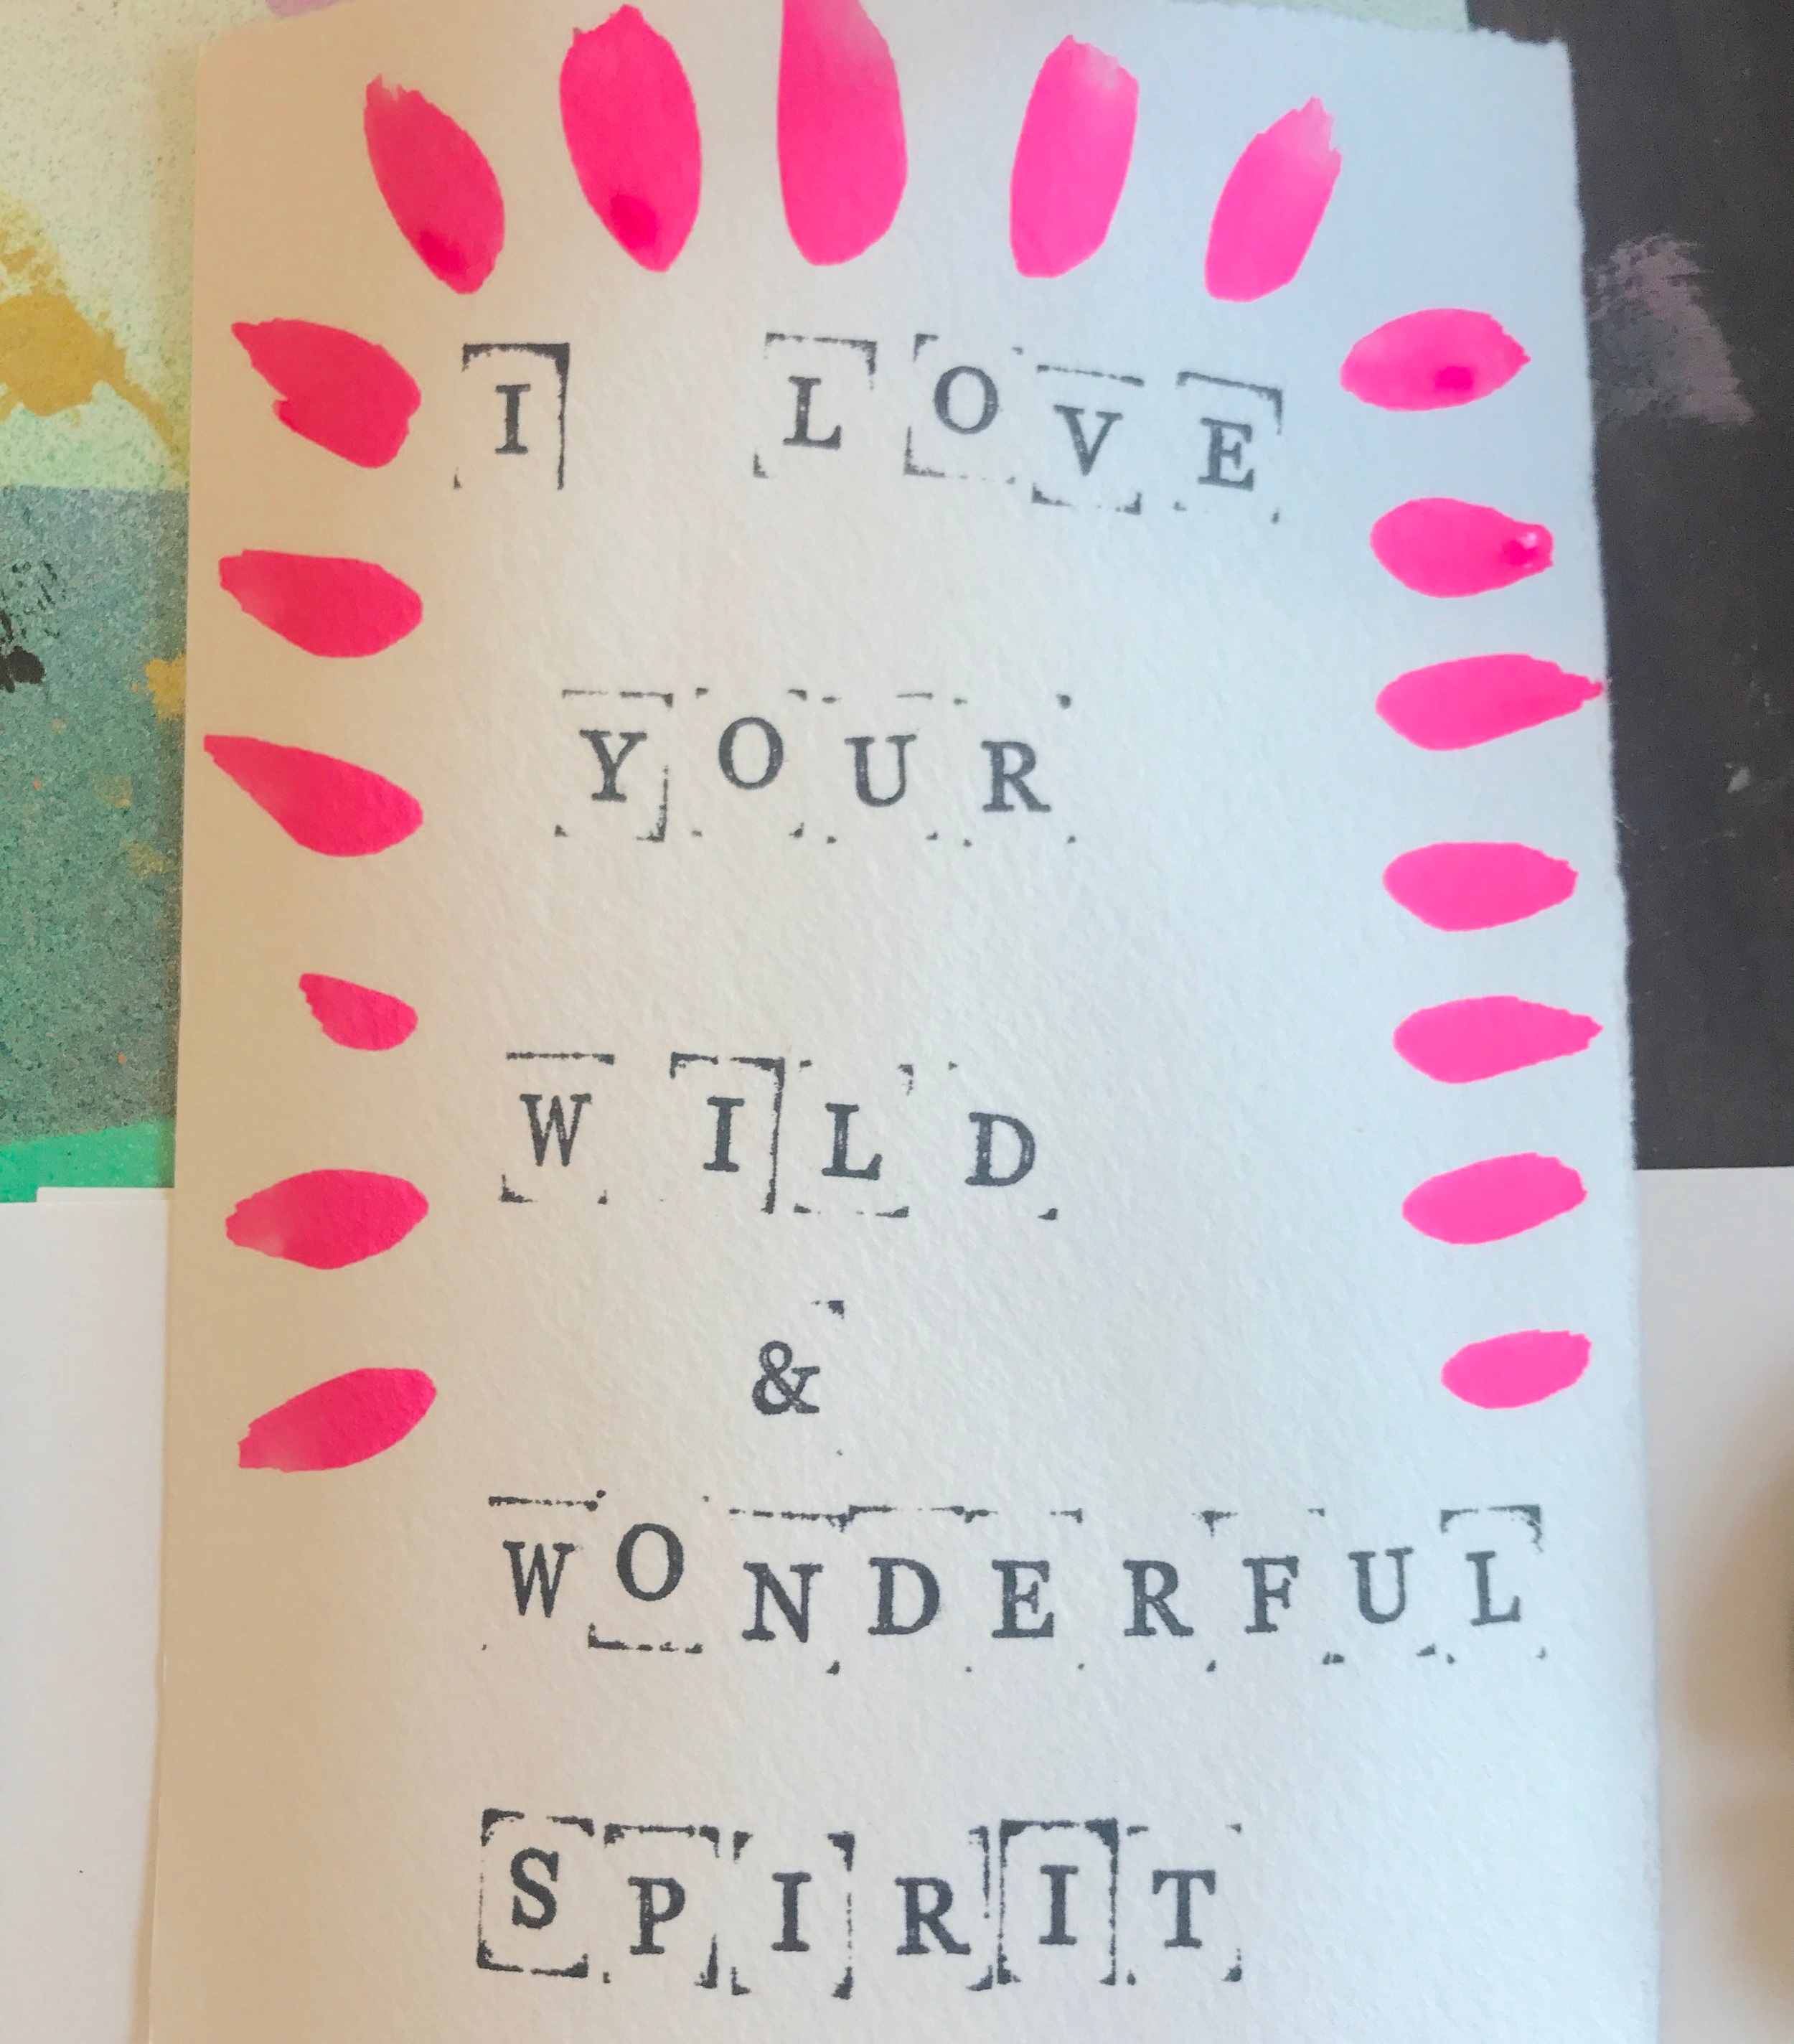 I LOVE
YOUR
WILD
&
WONDERFUL
SPIRIT